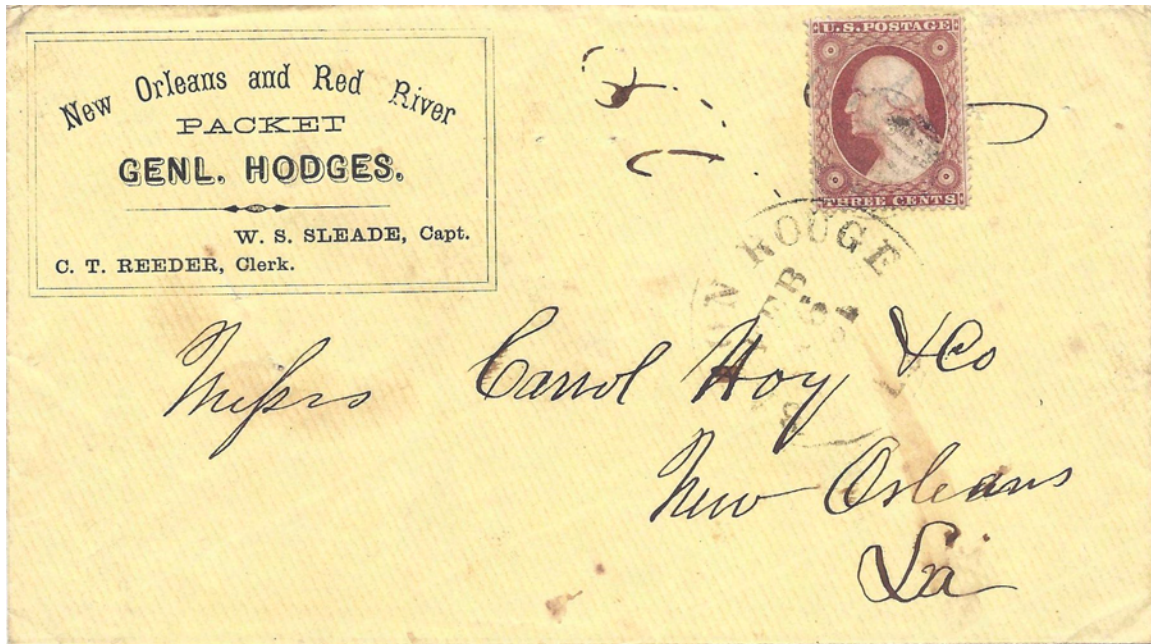 New Orleans and Red River
PACKET
GENL. HODGES.
W. S. SLEADE, Capt.
C. T. REEDER, Clerk.
U.S. POSTAGE
THREE CENTS
ROUGE
FEB
Messrs Carrol Hoy & Co
New Orleans
La